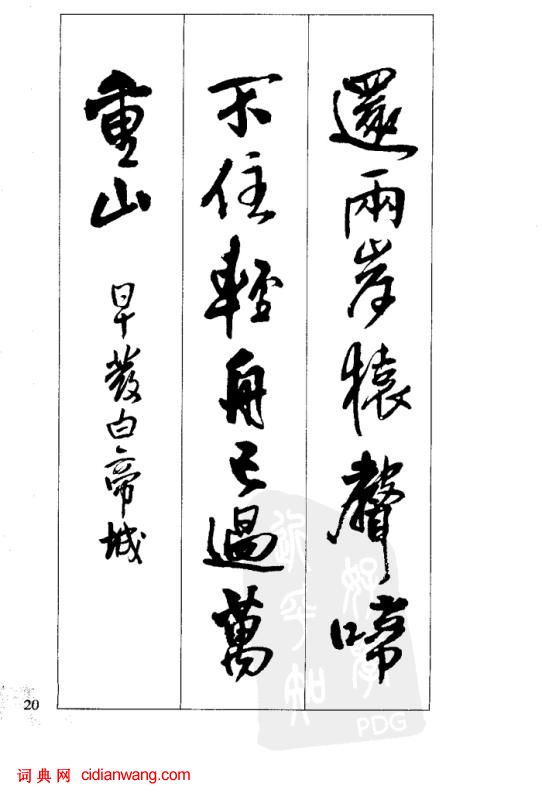 還兩岸猿聲啼
不住輕舟已過萬
重山
早發白帝城
20
PDG
词典网 cidianwang.com